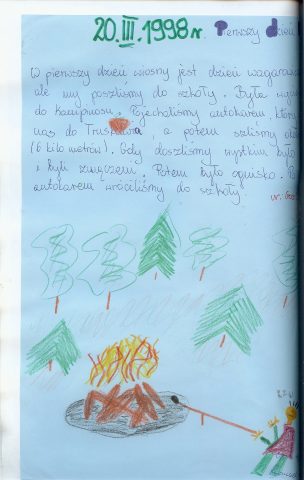 20.III.1998r. Pierwszy dzień
W pierwszy dzień wiosny jest dzień wagarow
ale my poszliśmy do szkoły. Była wy
do Kampinosu. Pojechaliśmy autokarem, któr
nas do Truskawia, a potem szliśmy
(6 kilometrów). Gdy doszliśmy wystkim było
i byli zmęczeni. Potem było ognisko.
autokarem wróciliśmy do szkoły.